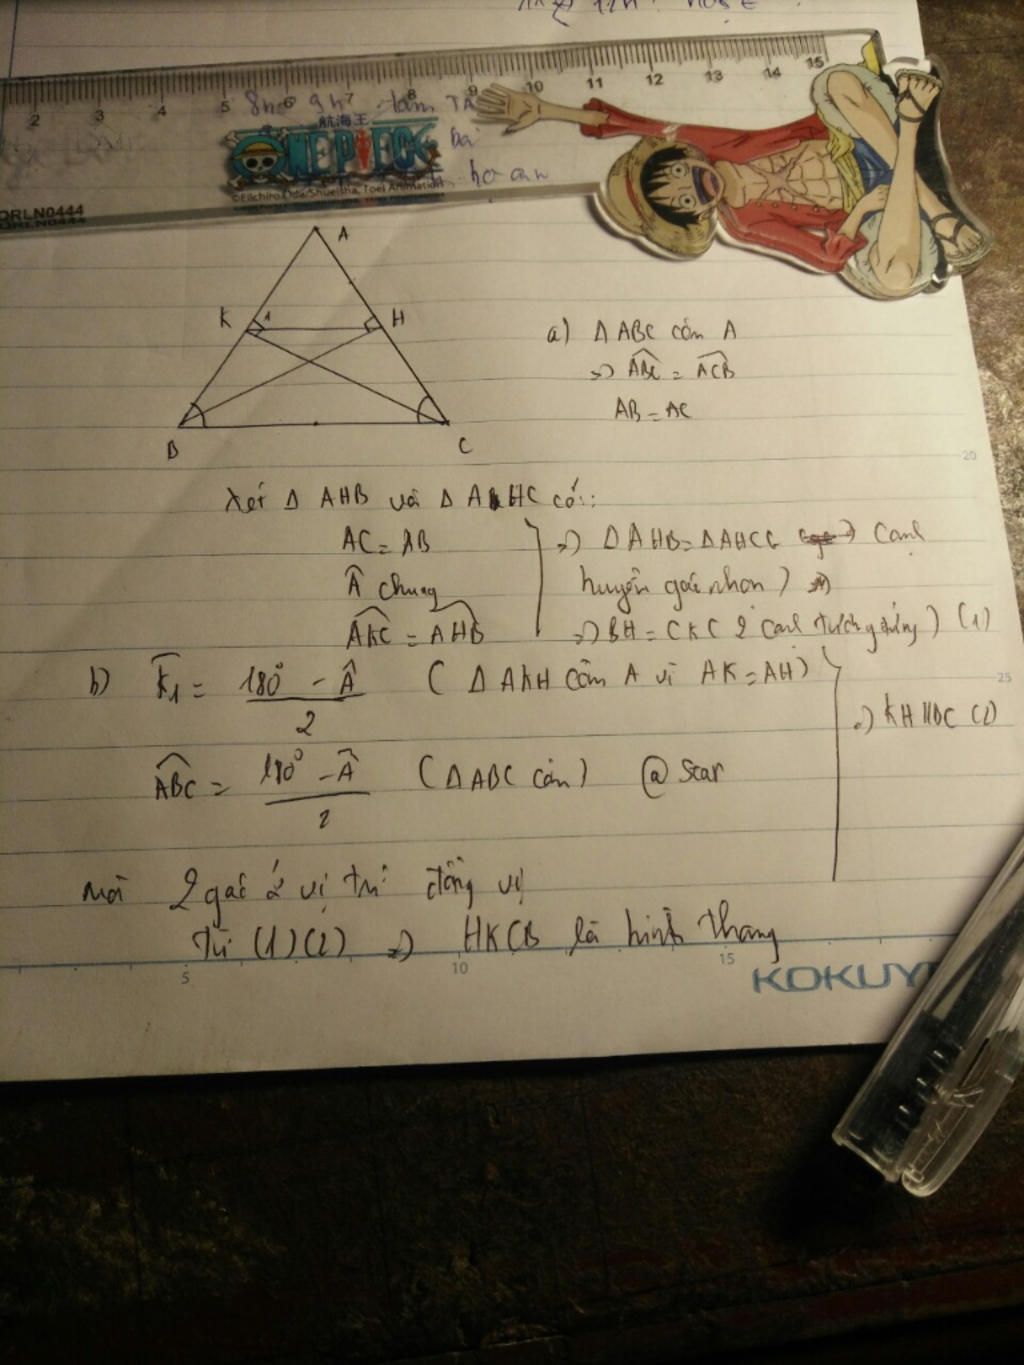 2 3 4 5 6 7 8 9 10 11 12 13 14 15
8h 9h tám TA
航海王
ONE PIECE
bài
©Eiichiro Oda/Shueisha, Toei Animation
ORLN0444
A
K 1 H
B C
a) Δ ABC cân A
=> ABC = ACB
AB = AC
20
Xét Δ AHB và Δ AHC có:
AC = AB
 chung
AKC = AHB
=> Δ AHB = Δ AHCC Cạnh
huyền góc nhọn)
=> BH = CK ( 2 cạnh tương ứng) (1)
b) K1 = 180° - Â / 2 ( Δ AKH cân A vì AK = AH)
25
=> KH || BC (2)
ABC = 180° - Â / 2 ( Δ ABC cân) @ Star
Mà 2 góc ở vị trí đồng vị
Từ (1) (2) => HKCB là hình thang
5 10 15
KOKUY